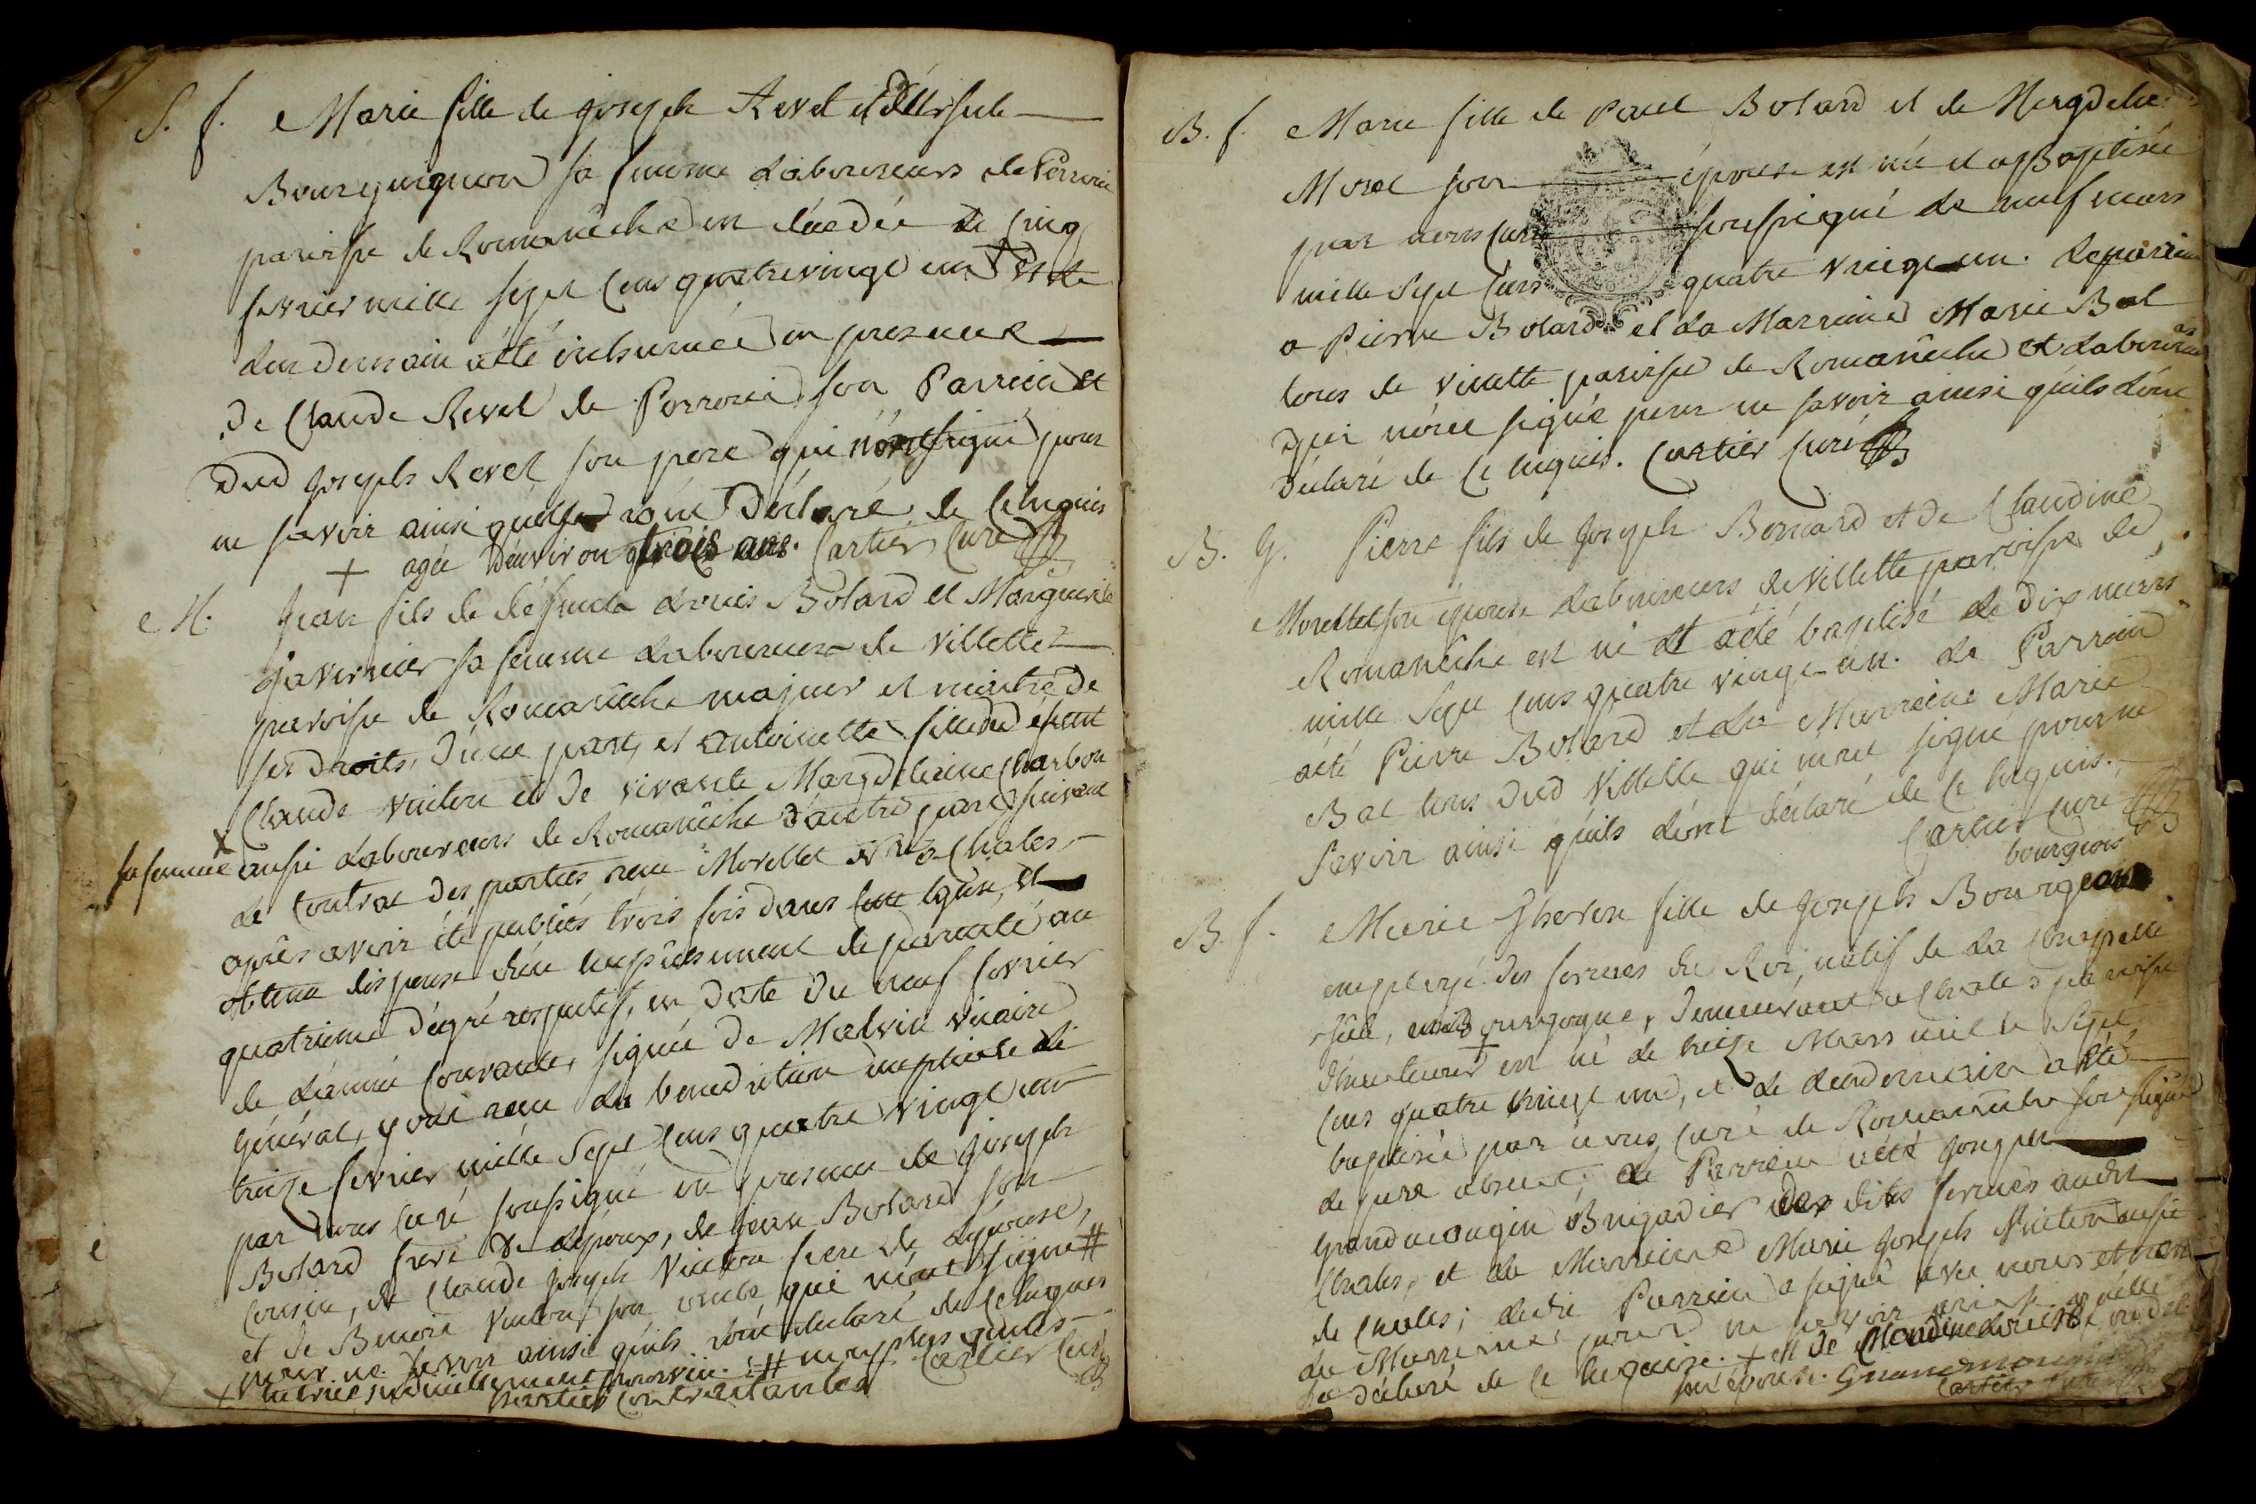 S. f. Marie fille de joseph Revel et d'Ursule
Bourguignon sa femme Laboureurs de Perroin
paroisse de Romanêche est décédée le cinq
fevrier mille sept cens quatrevingt un + et le
lendemain a été inhumée en presence
de Claude Revel de Perroin son Parrein et
dud joseph Revel son pere qui n'ont signé pour
ne savoir ainsi qu'ils l'ont déclaré de ce enquis
+ agée d'environ trois ans. Cartier Curé
M. jean fils de défunct Louis Botard et Marguerite
javernier sa femme Laboureurs de villette
paroisse de Romanêche majeur et maitre de
ses droits, d'une part, et Antoinette fille de défunt
Claude vuiton et de vivante Magdeleine Charbon
sa femme aussi Laboureurs de Romanêche d'autre part suivant
le Contrat des parties reçu Morellet Nre a Chales
après avoir été publiés trois fois dans cette Eglise, et
obtenu dispense d'un empêchement de parenté au
quatrieme dégré respectif, en date du neuf fevrier
de l'année Courante, signée de Malvin vicaire
Général, y ont reçu la benediction nuptiale le
treize fevrier mille sept cens quatre vingt un
par nous Curé soussigné en presence de joseph
Botard frere de L'époux, de jean Botard son
Cousin, de Claude joseph Vuiton frere de L'épouse,
et de Benoit Vuiton son oncle qui n'ont signé #
pour ne savoir ainsi qu'ils l'ont déclaré de ce enquis
# non plus que les
parties Contractantes Cartier Curé
B. f. Marie fille de Paul Botard et de Magdelene
Morel son épouse est née et a été Baptisée
par nous Curé soussigné le neuf mars
mille sept cens quatre vingt un. Le parrein
a Pierre Botard et La Marreine Marie Bal
tous de villette paroisse de Romanêche et Laboureurs
qui n'ont signé pour ne savoir ainsi qu'ils l'ont
déclaré de ce enquis. Cartier Curé
B. G. Pierre fils de joseph Bernard et de Claudine
Morellet son épouse Laboureurs de Villette paroisse de
Romanêche est né et a été baptisé le dix mars
mille sept cens quatre vingt-un. Le Parrein
a été Pierre Botard et La Marreine Marie
Bal tous dud Villette qui n'ont signé pour ne
savoir ainsi qu'ils l'ont déclaré de ce enquis.
Cartier Curé
bourgeois
B. f. Marie Therese fille de joseph
employé des fermes du Roi, natif de La Chapelle
demeurant a Chales paroisse
est né le treize Mars mille sept
cens quatre vingt un, et le lendemain a été
baptisé par nous Curé de Romanêche soussigné
le pere absent; Le Parrein a été joseph
Grandmongin Brigadier des dites fermes audit
Chales, et La Marreine Marie joseph Vuiton aussi
de Chales; Ledit Parrein a signé avec nous et non
La Marreine pour ne savoir ainsi qu'elle
l'a déclaré de ce enquise. + et de
son épouse. Grandmongin
Cartier Curé